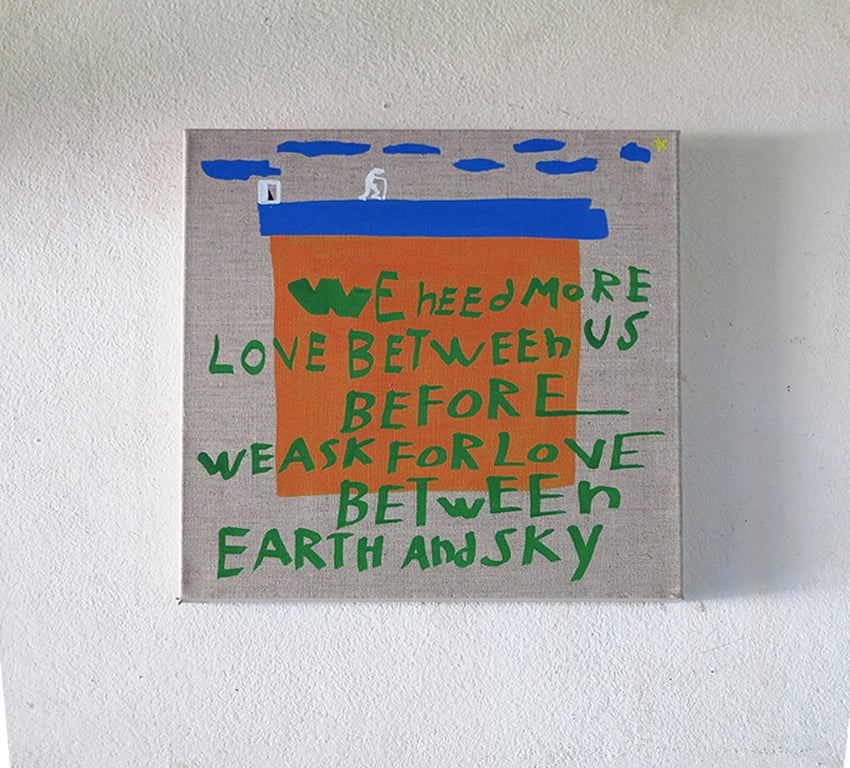 WE nEEd MoRE
LOVE BETWEEn US
BEFORE
WE ASK FoR LoVE
BETwEEn
EARTH And SKy